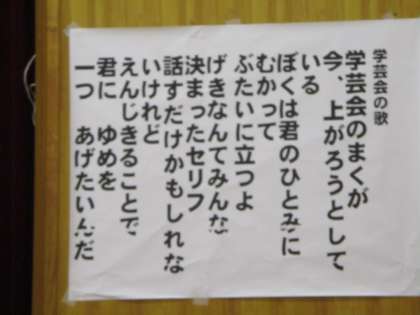 学芸会の歌
学芸会のまくが
今、上がろうとして
いる
ぼくは君のひとみに
むかって
ぶたいに立つよ
げきなんてみんな
決まったセリフ
話すだけかもしれな
いけれど
えんじきることで
君に ゆめを
一つ あげたいんだ